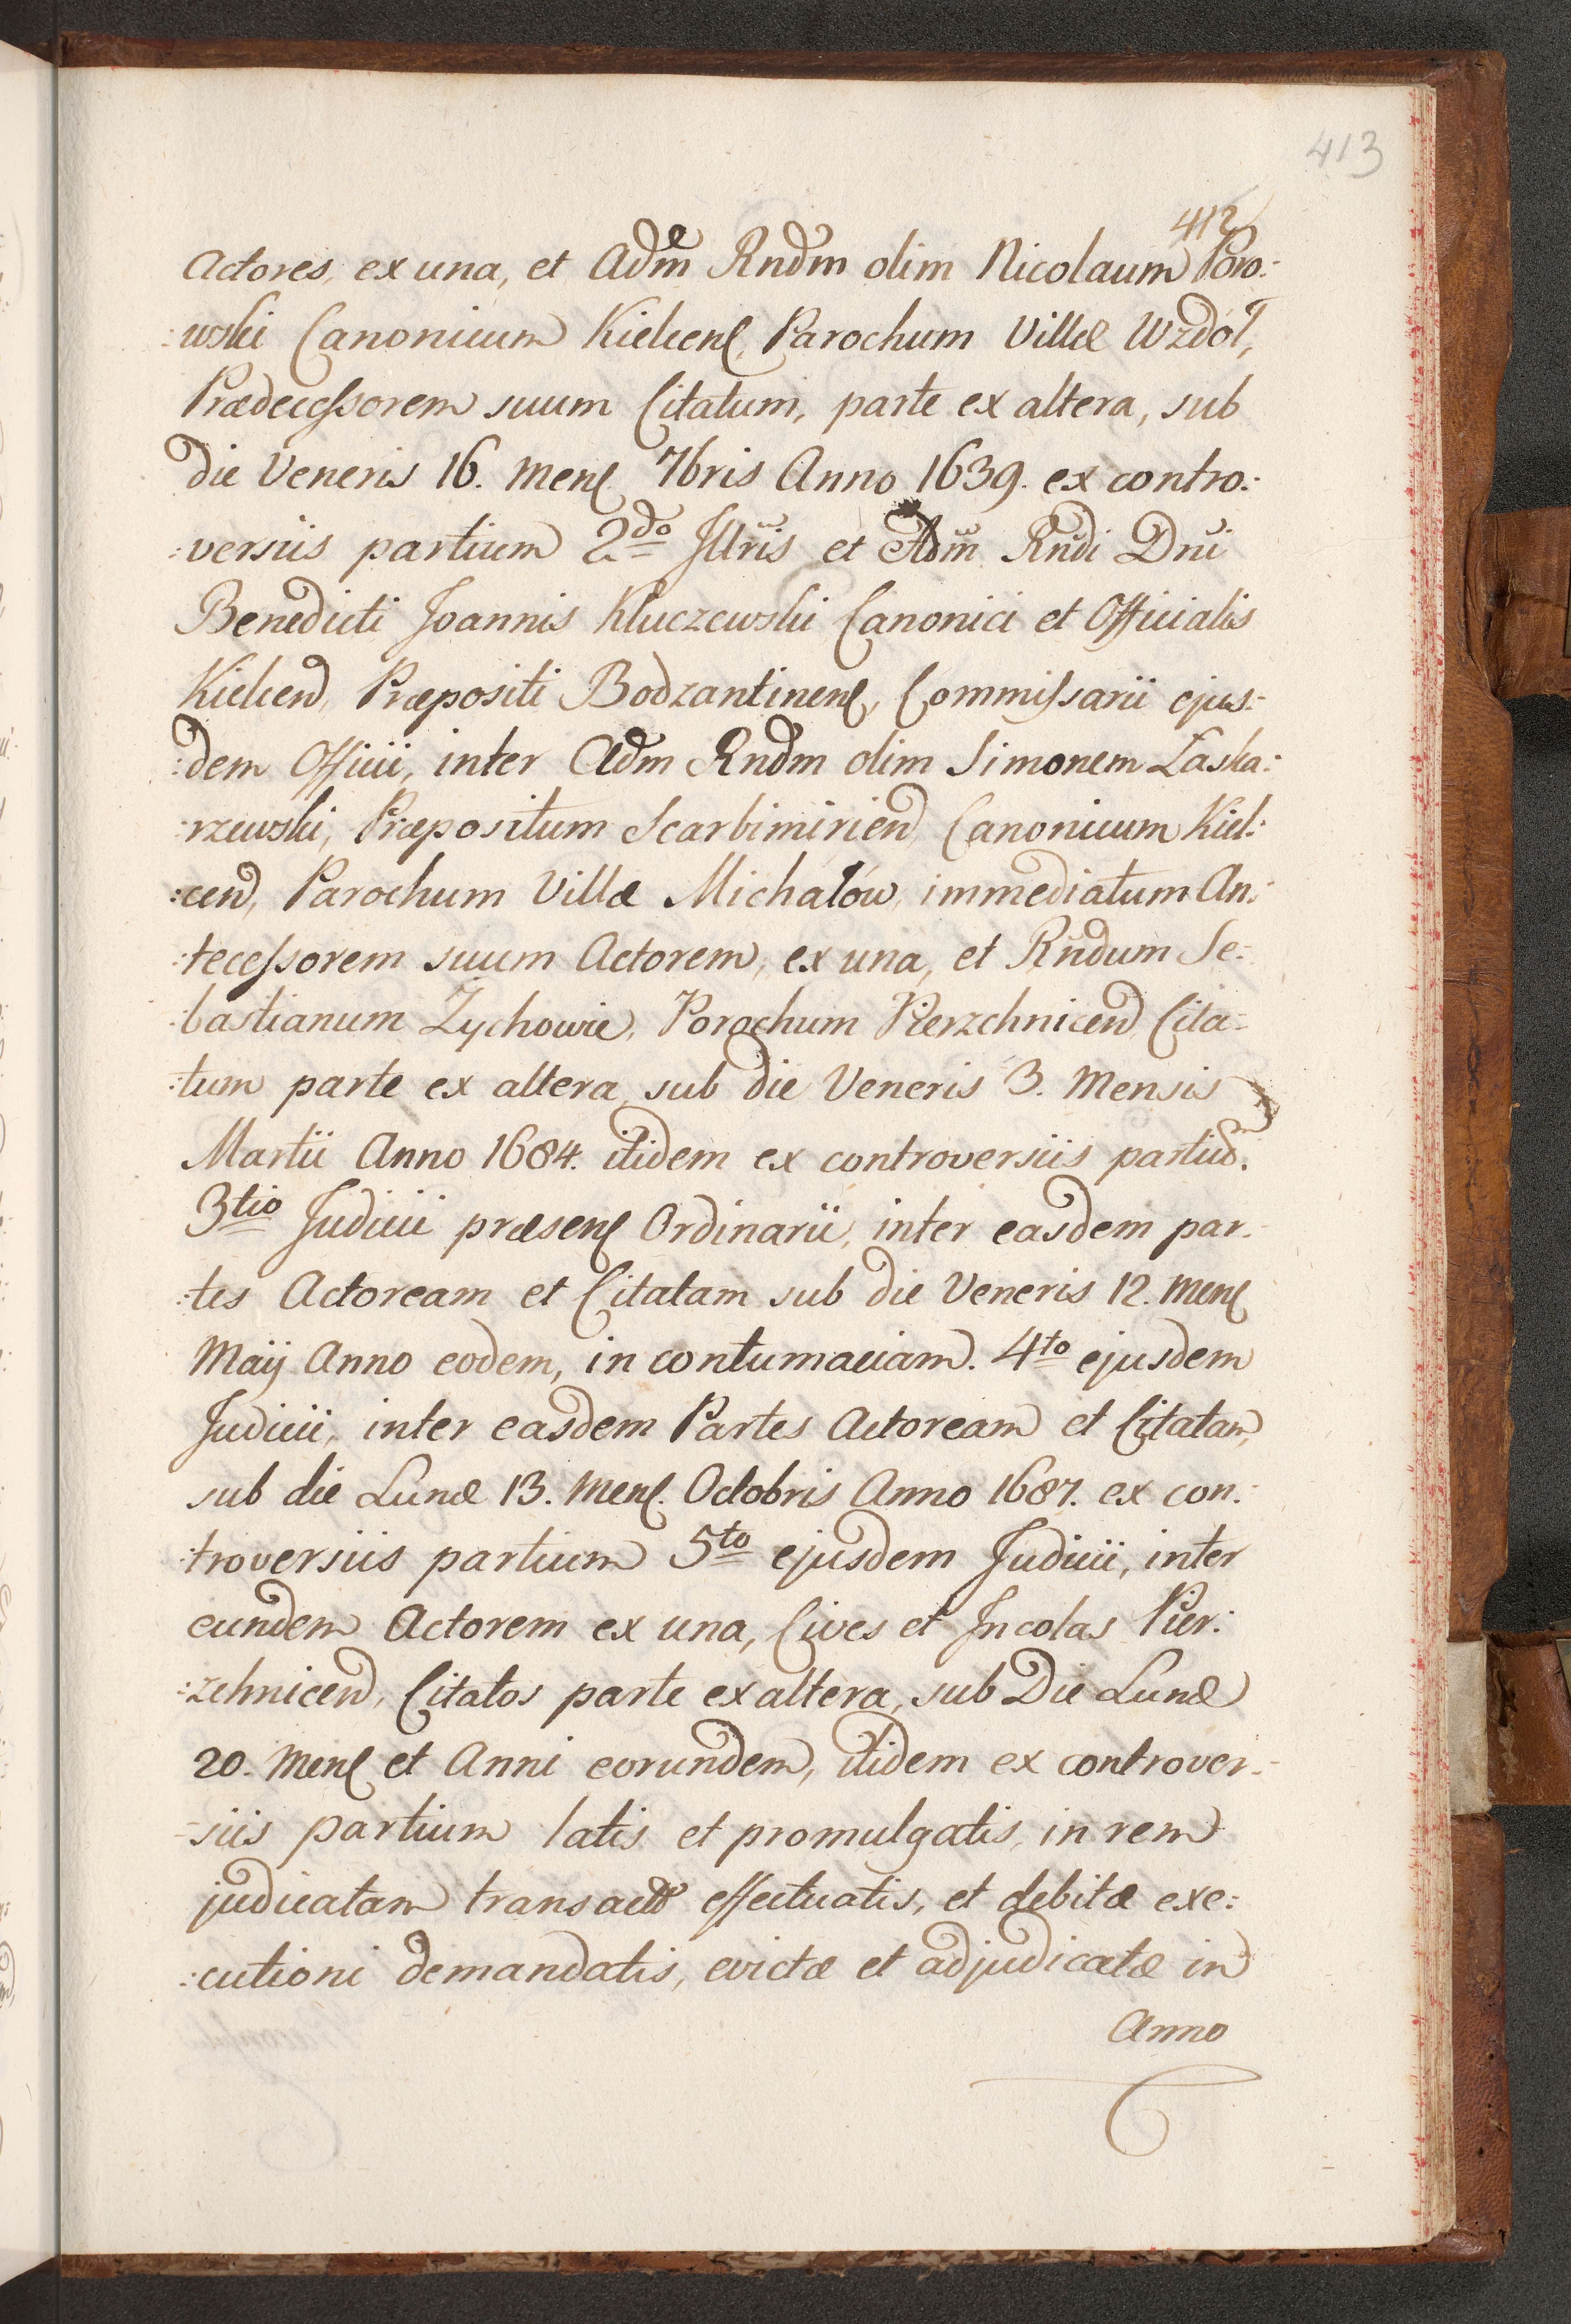 413
412
Actores, ex una, et Adm Rndm olim Nicolaum Poro:
:wski Canonicum Kielcens, Parochum Villæ Wzdół,
Prædecessorem suum Citatum, parte ex altera, sub
die Veneris 16. Mens 7bris Anno 1639. ex contro:
:versiis partium 2do Illris et Adm Rndi Dni
Benedicti Joannis Kluczewski Canonici et Officialis
Kielcen, Præpositi Bodzantinens, Commissarii ejus:
:dem Officii, inter Adm Rndm olim Simonem Laska:
:rzewski, Præpositum Scarbimirien, Canonicum Kiel:
:cen, Parochum Villæ Michałów, immediatum An:
:tecessorem suum Actorem, ex una, et Rndum Se:
:bastianum Zychowic, Porochum Pierzchnicen Cita:
:tum parte ex altera, sub die Veneris 3. Mensis
Martii Anno 1684. itidem ex controversiis partium.
3tio Judicii præsens Ordinarii, inter easdem par:
:tes Actoream et Citatam sub die Veneris 12. Mens
Maij Anno eodem, in contumaciam. 4to ejusdem
Judicii, inter easdem Partes Actoream et Citatam,
sub die Lunæ 13. Mens. Octobris Anno 1687. ex con:
:troversiis partium 5to ejusdem Judicii, inter
eundem Actorem ex una, Cives et Incolas Pier:
:zchnicen, Citatos parte ex altera, sub Die Lunæ
20. Mens et Anni eorundem, itidem ex controver:
:siis partium latis et promulgatis, in rem
judicatam transactis effectuatis, et debitæ exe:
:cutioni demandatis, evictæ et adjudicatæ in
Anno